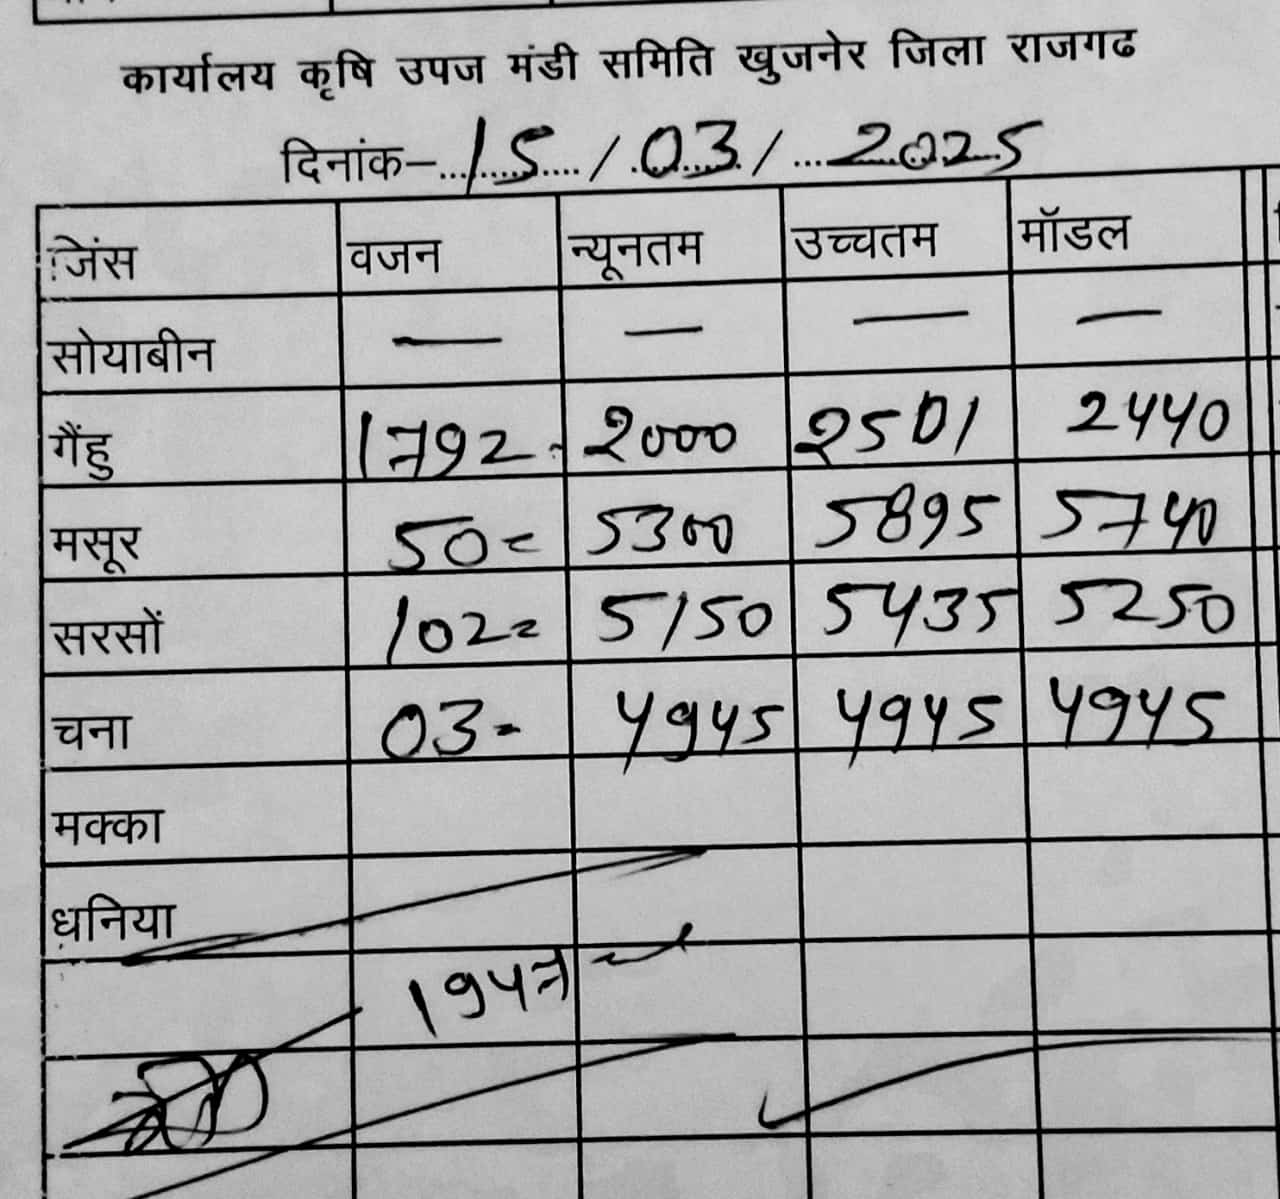 कार्यालय कृषि उपज मंडी समिति खुजनेर जिला राजगढ
दिनांक–15/03/2025
जिंस वजन न्यूनतम उच्चतम मॉडल
सोयाबीन — — — —
गैंहु 1792 2000 2501 2440
मसूर 50= 5300 5895 5740
सरसों 102= 5150 5435 5250
चना 03- 4945 4945 4945
मक्का
धनिया
1947